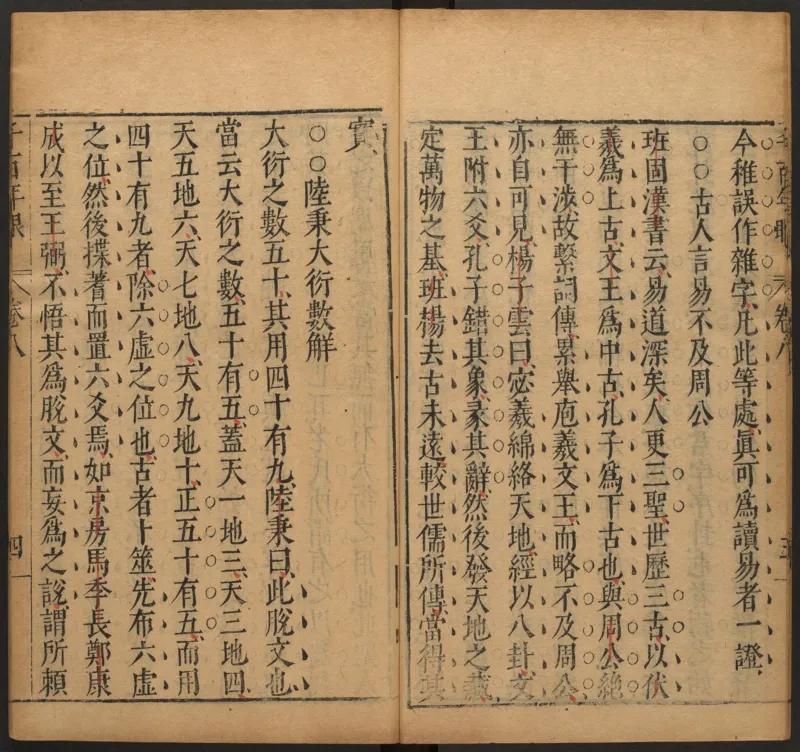 今稚誤作雜字凡此等處眞可爲讀易者一證
○○古人言易不及周公
班固漢書云易道深矣人更三聖世歷三古以伏
羲爲上古文王爲中古孔子爲下古也與周公絶
無干涉故繫詞傳累舉庖羲文王而略不及周公
亦自可見楊子雲曰宓羲綿絡天地經以八卦文
王附六爻孔子錯其象彖其辭然後發天地之藏
定萬物之基班楊去古未遠較世儒所傳當得其
實
○○陸秉大衍數解
大衍之數五十其用四十有九陸秉曰此脫文也
當云大衍之數五十有五蓋天一地二天三地四
天五地六天七地八天九地十正五十有五而用
四十有九者除六虛之位也古者卜筮先布六虛
之位然後揲蓍而置六爻焉如京房馬季長鄭康
成以至王弼不悟其爲脫文而妄爲之說謂所賴
千百年眼 卷八 四